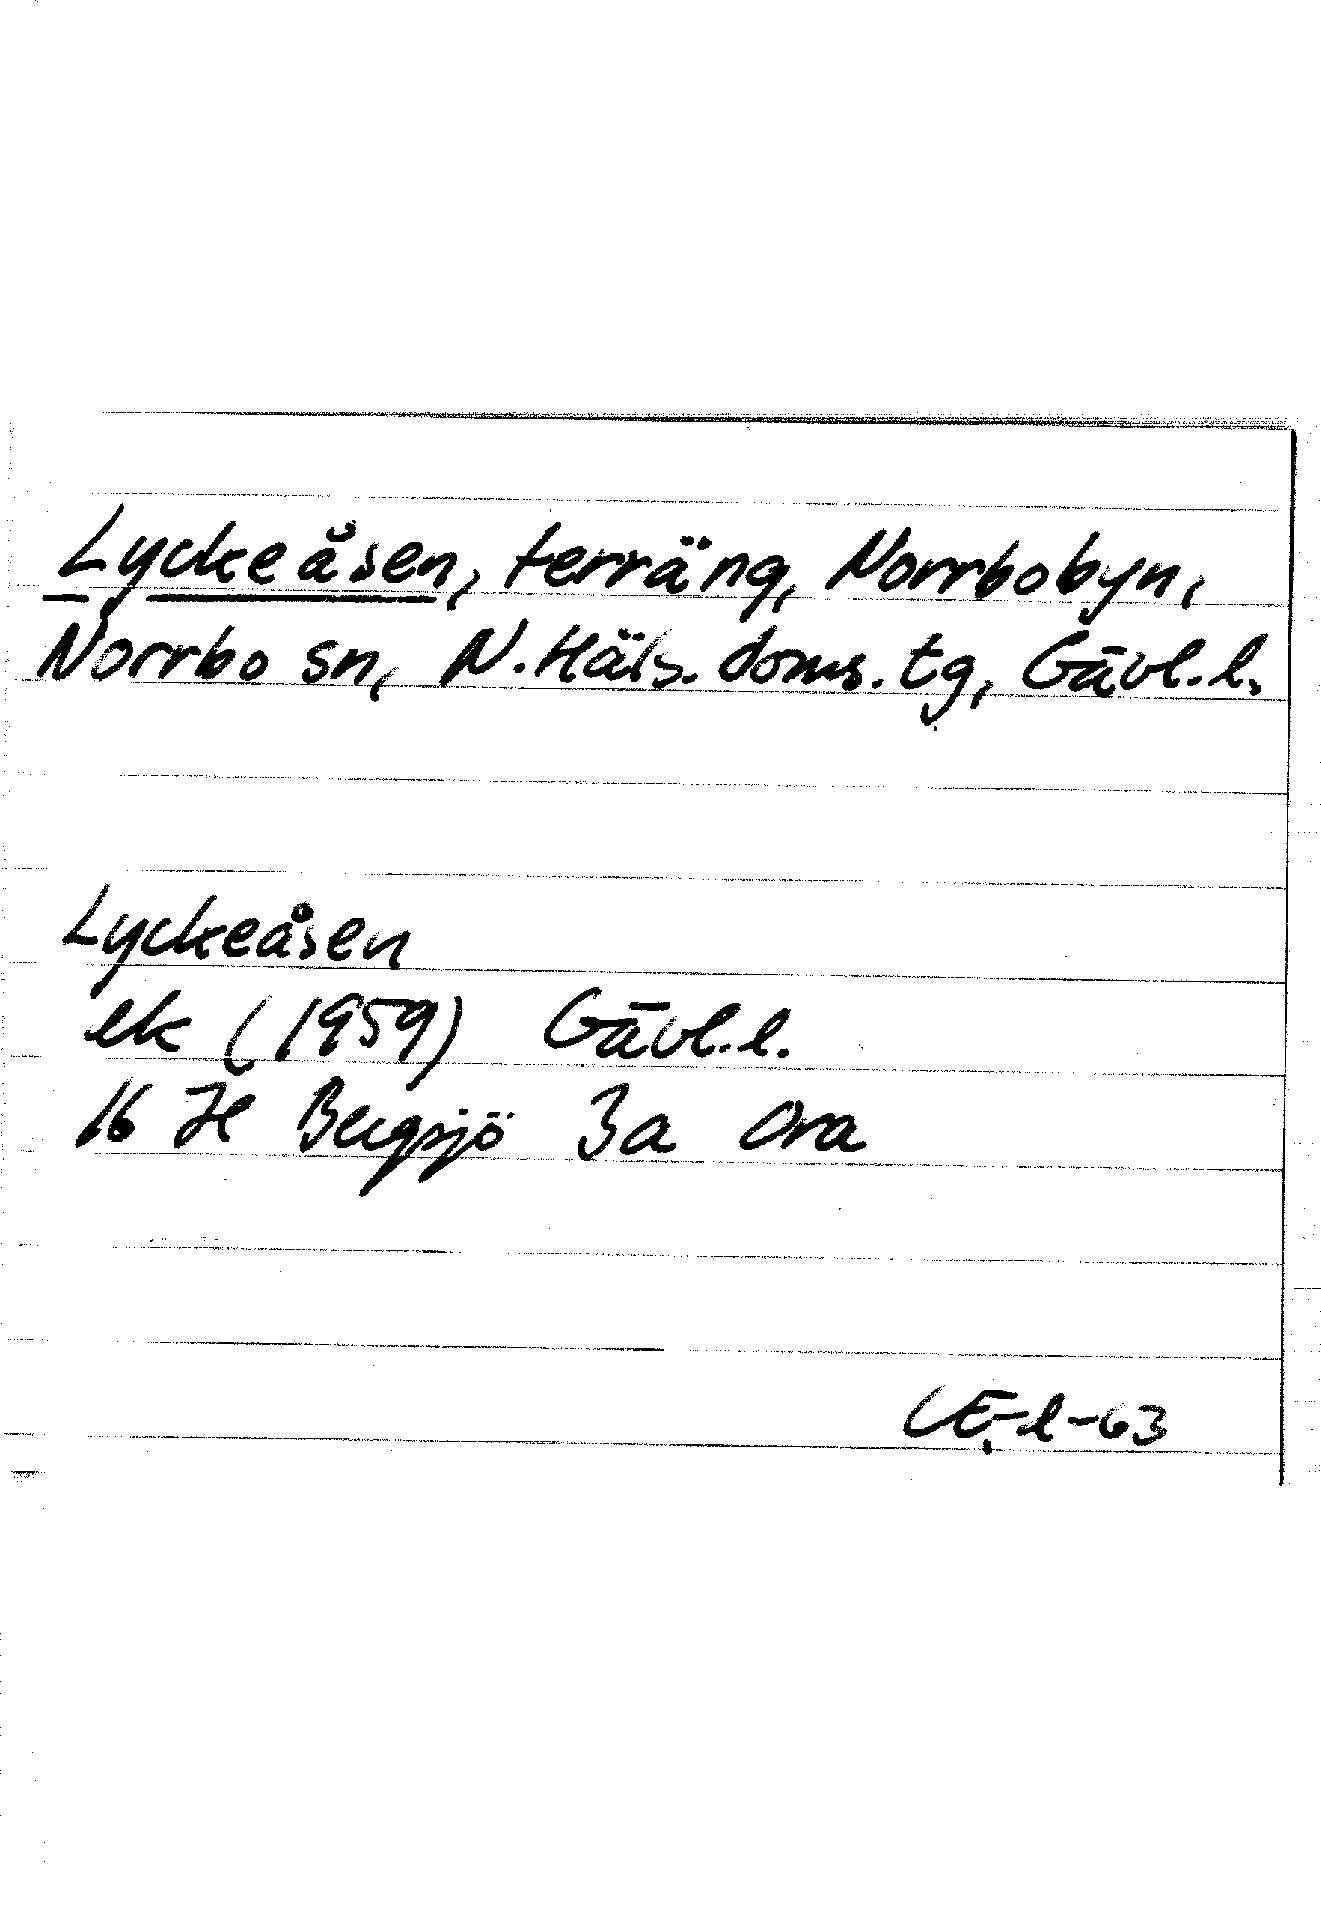 Lyckeåsen, terräng, Norrbobyn,
Norrbo sn, N. Häls. doms. tg, Gävl. l.
Lyckeåsen
ek (1959) Gävl. l.
16 H Bergsjö 3a Ora